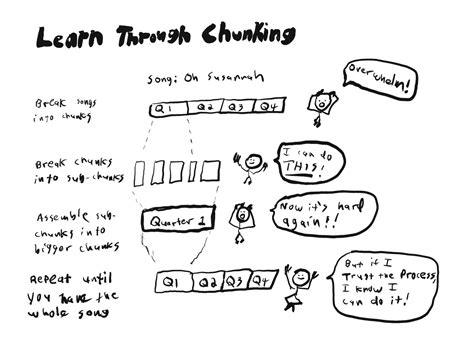 Learn Through Chunking
Song: Oh Susannah
Break songs
into chunks
Q1 Q2 Q3 Q4
Overwhelm!
Break chunks
into sub-chunks
I can do
THIS!
Assemble sub-
chunks into
bigger chunks
Quarter 1
Now it's hard
again!!
Repeat until
you have the
whole song
Q1 Q2 Q3 Q4
But if I
Trust the Process,
I know I
can do it!